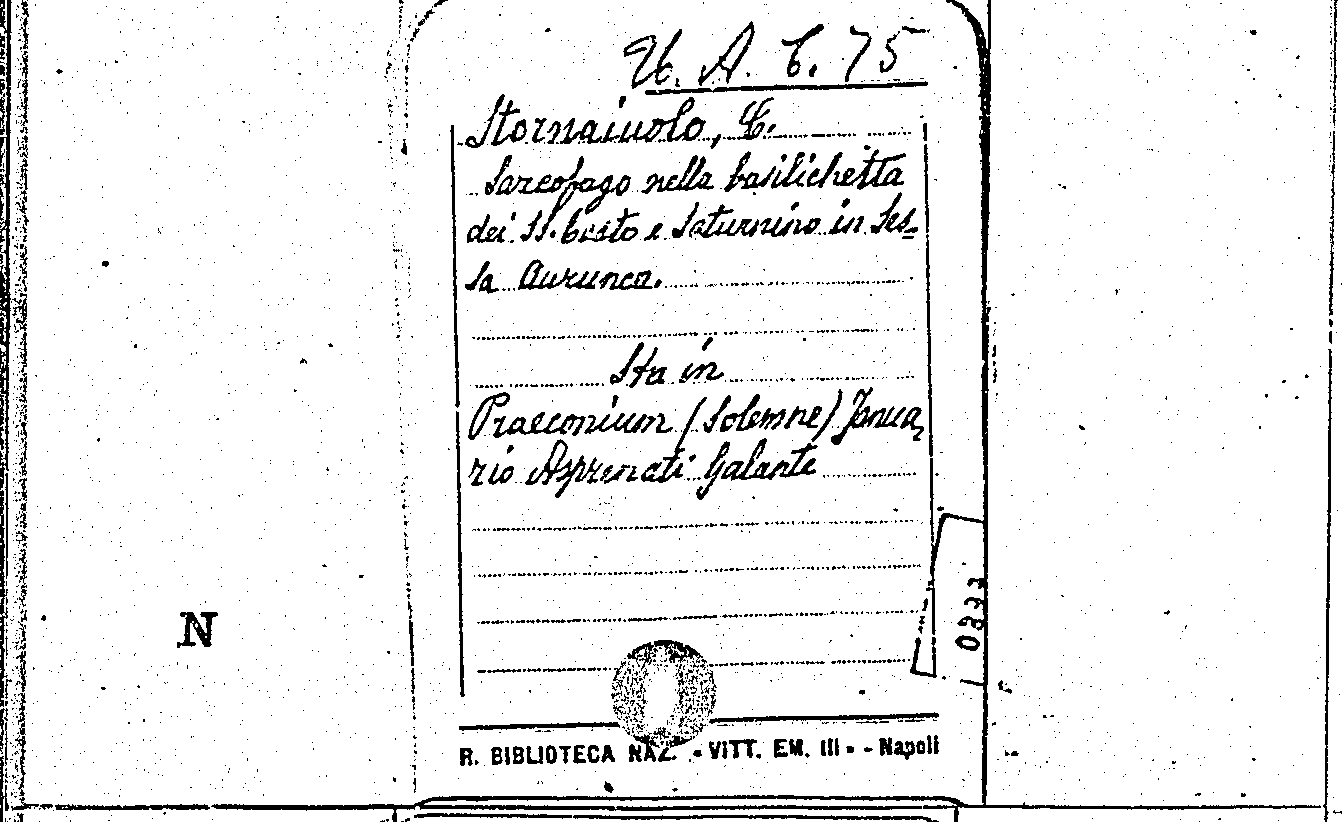 U. A. C. 75
Stornaiuolo, C.
Sarcofago nella basilichetta
dei SS. Casto e Saturnino in Ses=
sa Aurunca.
Sta in
Praeconium (Solemne) Janua,
rio Asprenati Galante
N
R. BIBLIOTECA NAZ. - VITT. EM. III - - Napoli